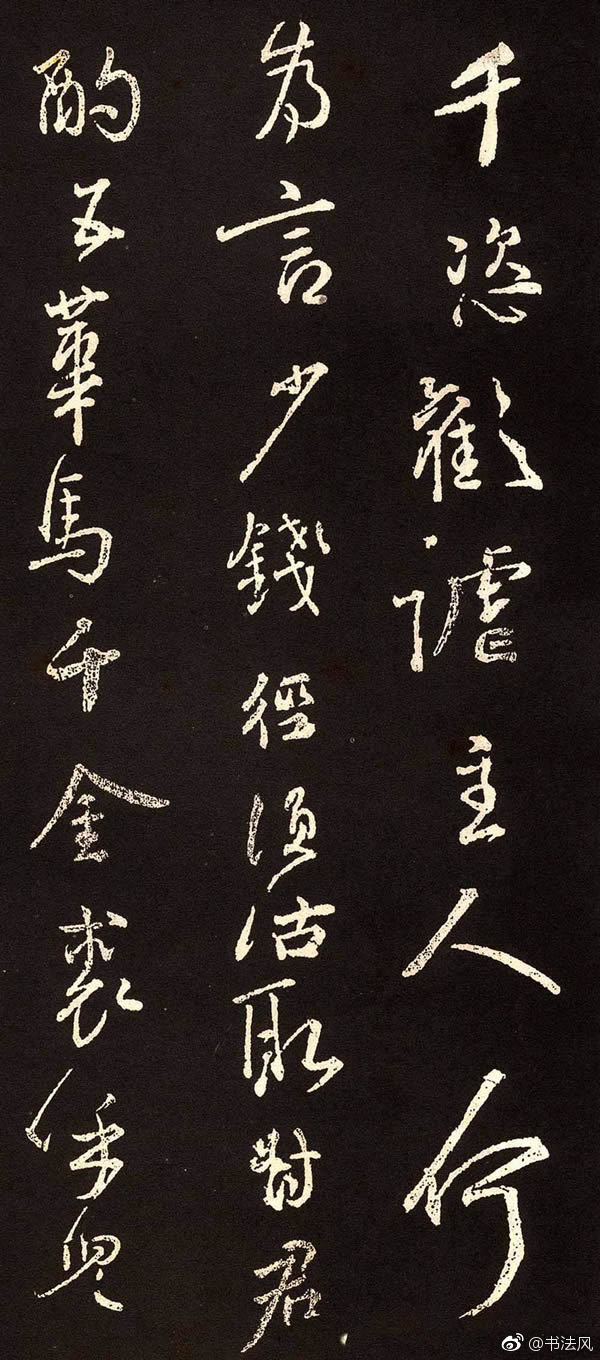 千恣歡謔主人何
為言少錢徑須沽取對君
酌五華馬千金裘呼兒
@书法风